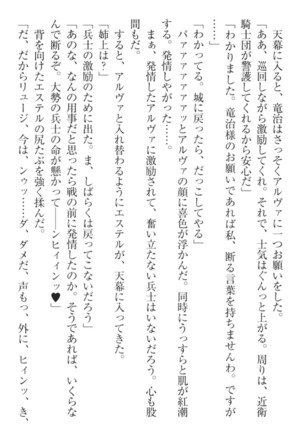 天幕に入ると、竜治はさっそくアルヴァに一つお願いをした。
「ああ、巡回しながら激励してくれ。それで、士気はぐんっと上がる。周りは、近衛
騎士団が警護してくれるから安心だ」
「わかりました。竜治様のお願いであれば私、断る言葉を持ちませんわ。ですが
「わかってる。城に戻ったら、だっこしてやる」
パァァァァァァッとアルヴァの顔に喜色が浮かんだ。同時にうっすらと肌が紅潮
する。発情しやがった……。
まぁ、発情したアルヴァに激励されて、奮い立たない兵士はいないだろう。心も股
間もだ。
すると、アルヴァと入れ替わるようにエステルが、天幕に入ってきた。
「姉上は？」
「兵士の激励のために出た。ま、しばらくは戻ってこないだろう」
「あのな、なんの用事だと思ったら戦の前に発情したのか。そうであれば、いくらな
んで断るぞ。大勢の兵士の命が懸かって――ンヒィィンッ♥」
背を向けたエステルの尻たぶを強く揉んだ。
「だ、だからリュージ、今は、ンゥッ……ダ、ダメだ、声もっ、外に、ヒィンッ、き、